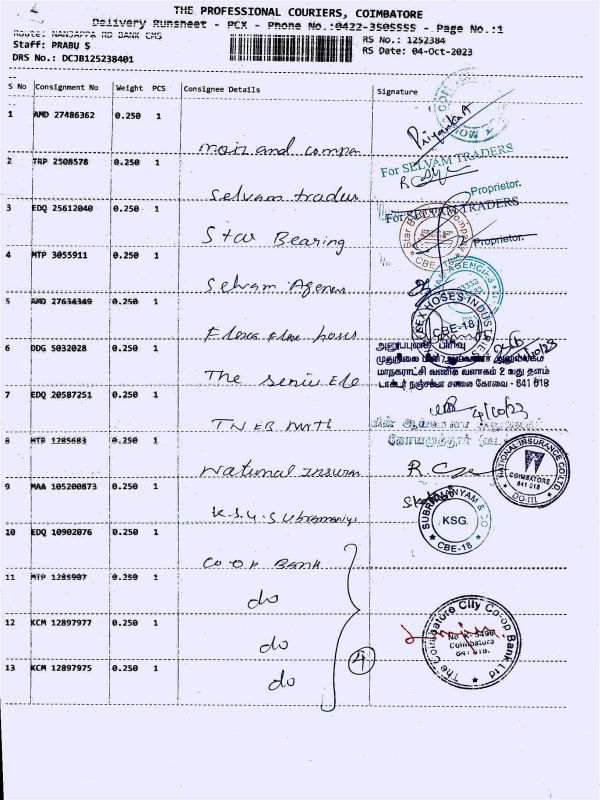 THE PROFESSIONAL COURIERS, COIMBATORE
Delivery Runsheet - PCX - Phone No.:0422-3505555 - Page No.:1
Route: NANJAPPA RD BANK CMS
RS No.: 1252384
Staff: PRABU S
RS Date: 04-Oct-2023
DRS No.: DCJB125238401
S No Consignment No Weight PCS Consignee Details Signature
1 AMD 27486362 0.250 1
Priyanka A
2 TRP 2508578 0.250 1
For SELVAM TRADERS
Selvam
Proprietor.
3 EDQ 25612040 0.250 1
For SELVAM TRADERS
Star Bearing
Proprietor.
CBE-18
4 MTP 3055911 0.250 1
Selvam
AGENCIES
5 AMD 27634349 0.250 1
HOSES INDUSTRIES
CBE-18
6 DDG 5032028 0.250 1
The
மாநகராட்சி வணிக வளாகம் 2 வது தளம்
டாக்டர் நஞ்சப்பா சாலை கோவை - 641 018
7 EDQ 20587251 1
0.250
4/10/23
TNEB
8 MTP 1285683 0.250 1
National
NATIONAL INSURANCE CO LTD
COIMBATORE
641 018
DO-III
9 MAA 105200873 0.250 1
K.S.G. Subramaniya
SUBRAMANIYAM & CO
KSG.
CBE-18
10 EDQ 10902076 0.250 1
CO-OP BANK
11 MTP 1285907 0.250 1
do
12 KCM 12897977 0.250 1
do
4
13 KCM 12897975 0.250 1
do
The Coimbatore City Co-op Bank Ltd
Coimbatore
641 018.